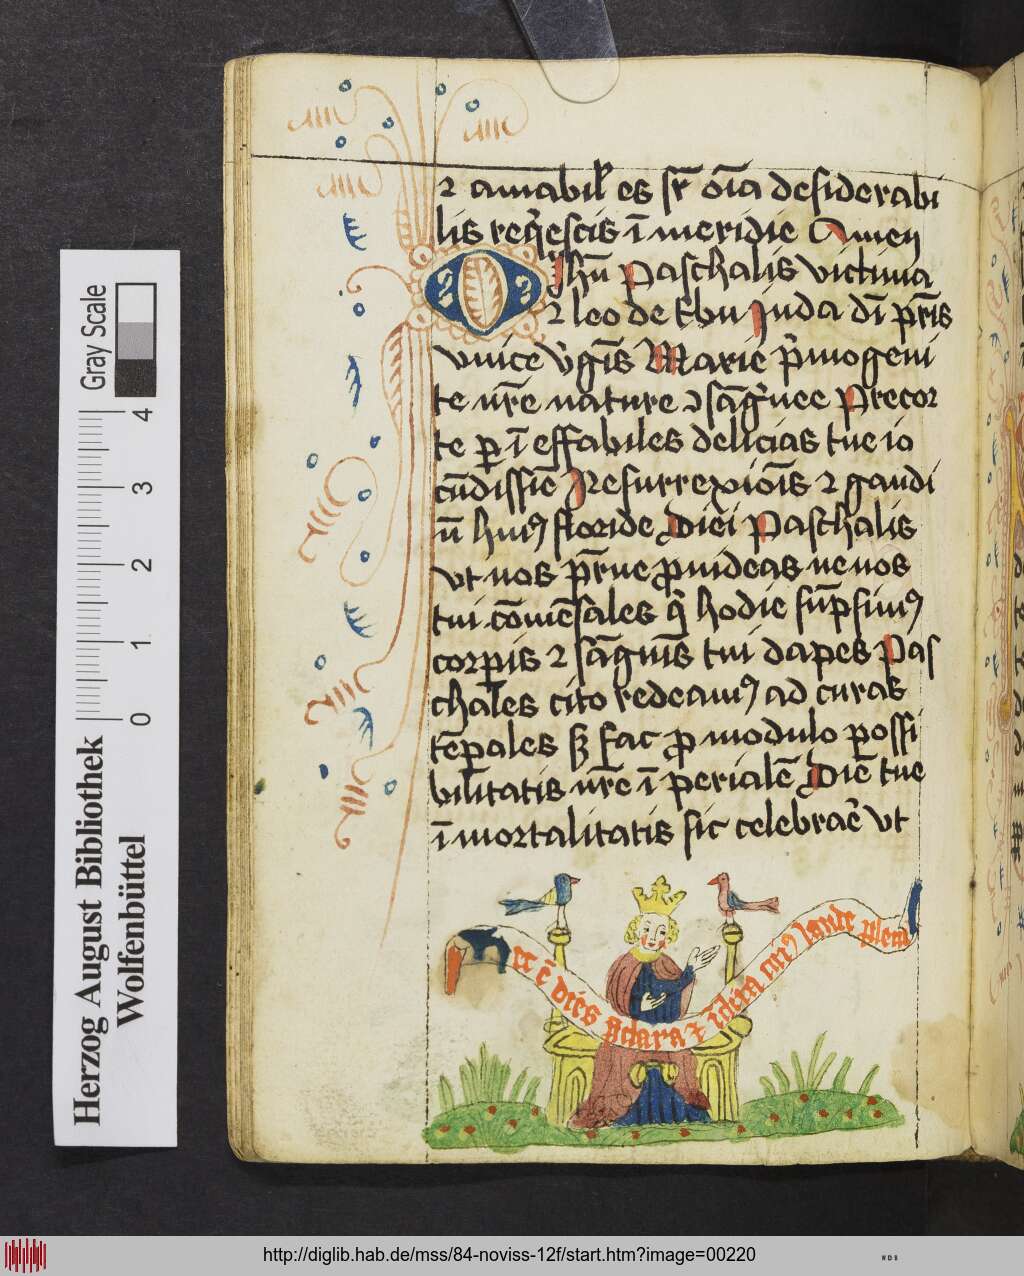 ⁊ amabil' es sr̄ oīa desiderabi
lis reqͥescis ī meridie Amen
O Jhū Paschalis victima
⁊ leo de tbu Juda dī pr̄is
vnice vͥgīs Marie pͥmogeni
te nr̄e nature ⁊ sāgͥnee Precor
te ꝑ ī effabiles delicias tue io
cūdissīe Resurrexiōis ⁊ gaudi
ū huiꝰ floride Diei Paschalis
vt nos pr̄ne ꝓuideas ne nos
tui cōmēsales qͥ hodie sūpsimꝰ
corꝑis ⁊ sāguīs tui dapes Pas
chales cito redeamꝰ ad curas
tēpales sꝫ fac ꝓ modulo possi
bilitatis nr̄e ī perialē Diē tue
ī mortalitatis sic celebrare vt
ec ē dies p̄clara ⁊ laude plena
Herzog August Bibliothek
Wolfenbüttel
Gray Scale
0 1 2 3 4
http://diglib.hab.de/mss/84-noviss-12f/start.htm?image=00220